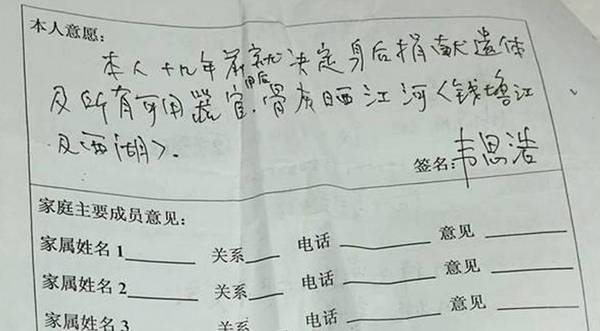 本人意愿:
本人十九年前就决定身后捐献遗体
用后
及所有可用器官.骨灰晒江河〈钱塘江
及西湖〉.
签名:韦思浩
家庭主要成员意见:
家属姓名1______ 关系____ 电话______ 意见______
家属姓名2______ 关系____ 电话______ 意见______
家属姓名3______ 关系____ 电话______ 意见______